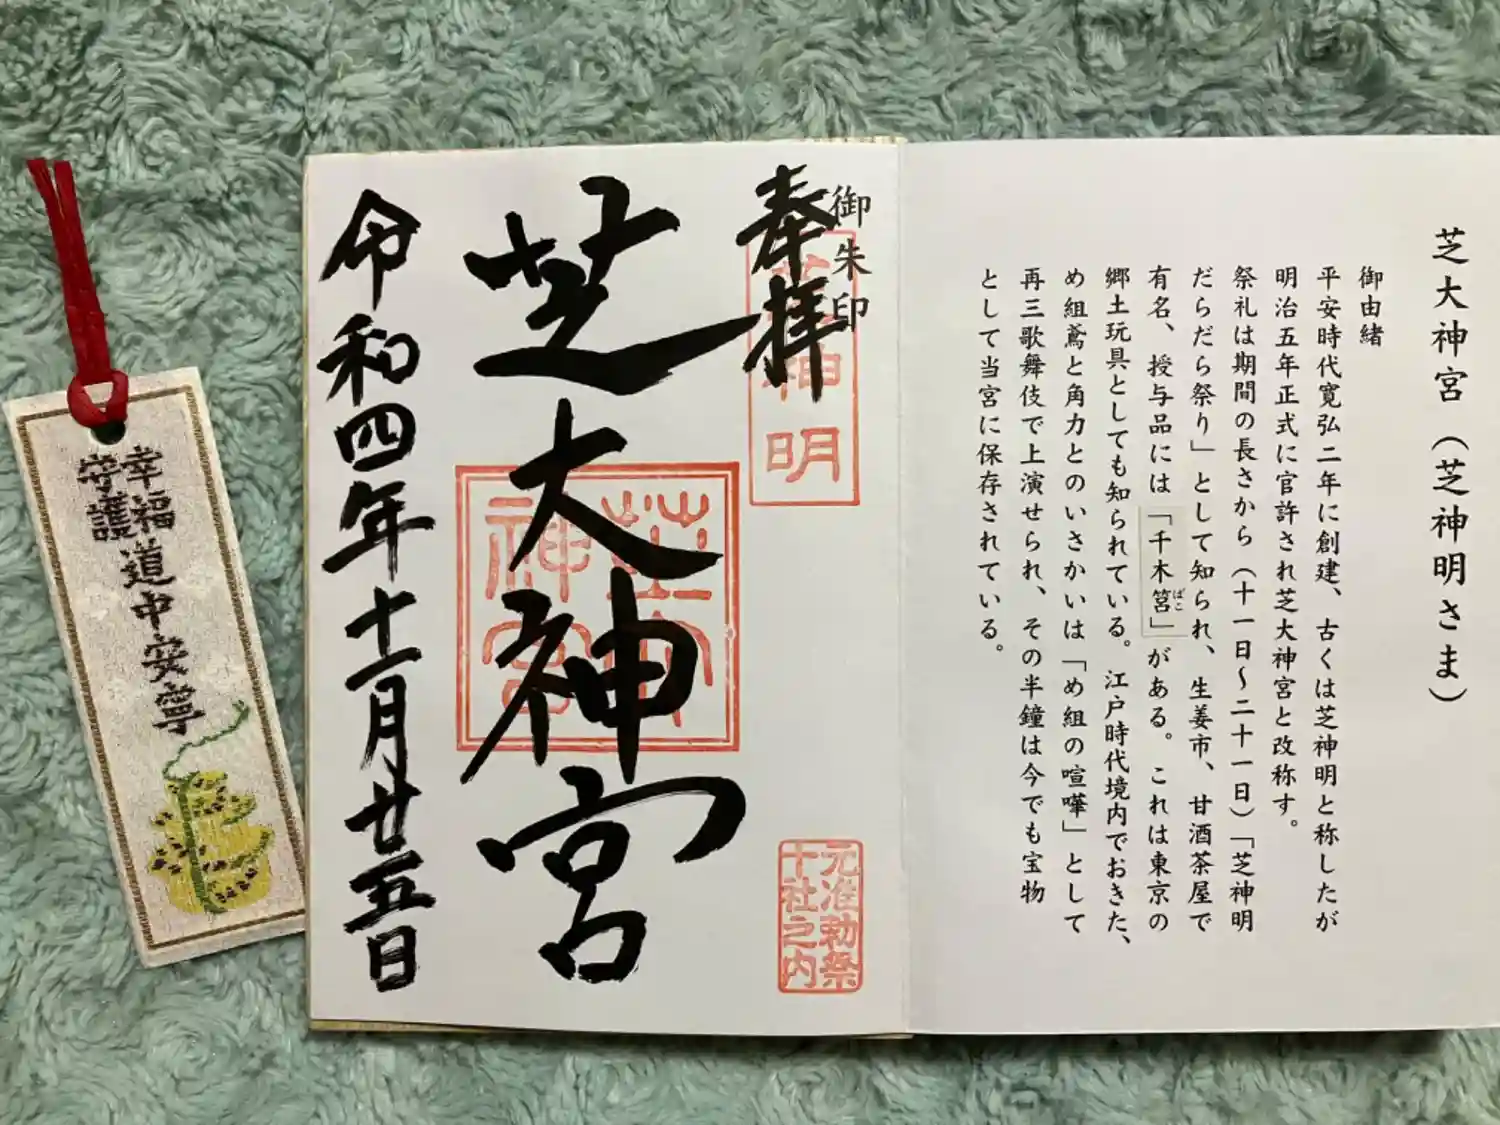 芝大神宮（芝神明さま）
御由緒
平安時代寛弘二年に創建、古くは芝神明と称したが
明治五年正式に官許され芝大神宮と改称す。
祭礼は期間の長さから（十一日〜二十一日）「芝神明
だらだら祭り」として知られ、生姜市、甘酒茶屋で
有名、授与品には「千木筥」がある。これは東京の
ばこ
郷土玩具としても知られている。江戸時代境内でおきた、
め組鳶と角力とのいさかいは「め組の喧嘩」として
再三歌舞伎で上演せられ、その半鐘は今でも宝物
として当宮に保存されている。
御朱印
奉拝
芝神明
元准勅祭
十社之内
芝大神宮
芝大
神宮
令和四年十一月廿五日
幸福
守護
道中安寧